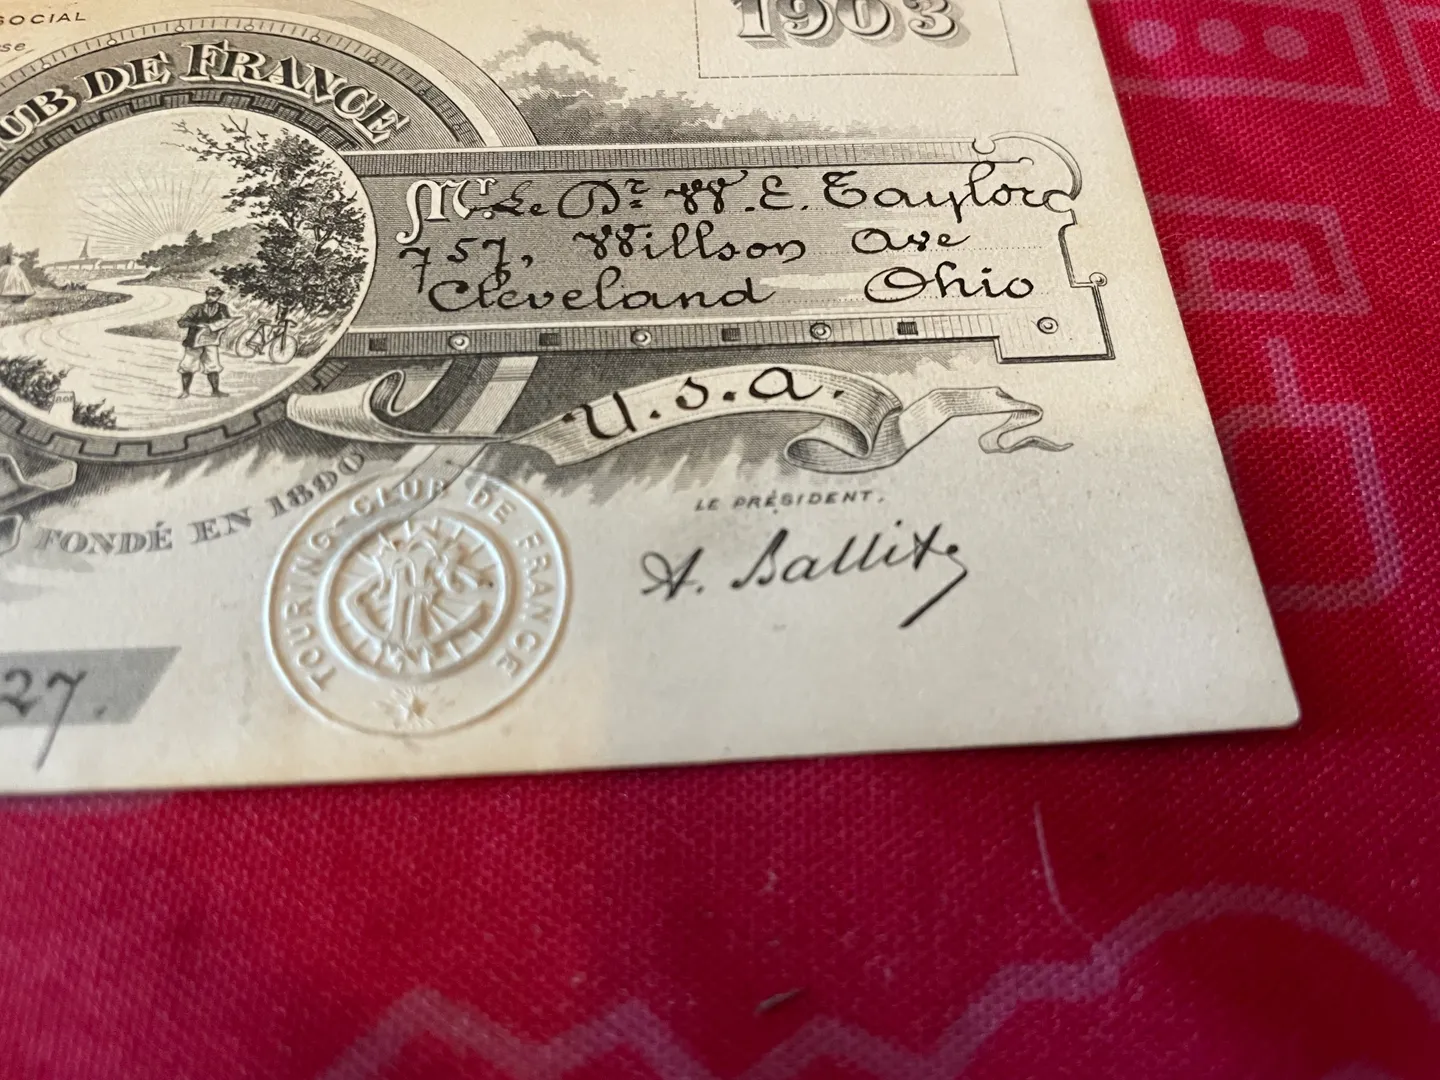 SOCIAL
1903
UB DE FRANCE
Mr. Le Dr W. E. Taylor
757, Willson Ave
Cleveland Ohio
U.S.A.
FONDÉ EN 1890
TOURING-CLUB DE FRANCE
LE PRÉSIDENT.
A. Ballif
27.